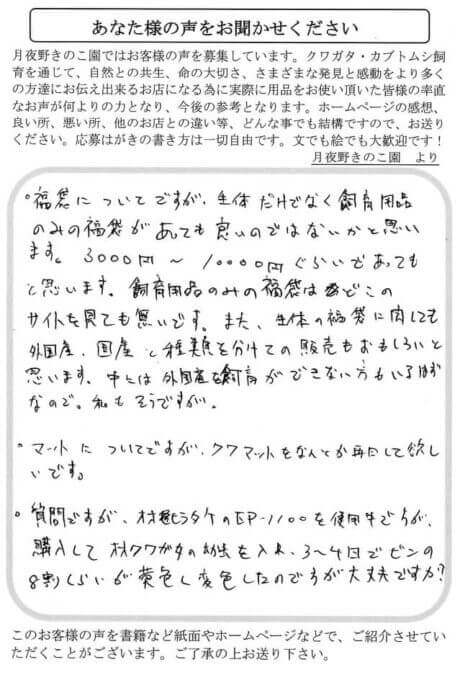 あなた様の声をお聞かせください
月夜野きのこ園ではお客様の声を募集しています。クワガタ・カブトムシ飼
育を通じて、自然との共生、命の大切さ、さまざまな発見と感動をより多く
の方達にお伝え出来るお店になる為に実際に用品をお使い頂いた皆様の率直
なお声が何よりの力となり、今後の参考となります。ホームページの感想、
良い所、悪い所、他のお店との違い等、どんな事でも結構ですので、お送り
ください。応募はがきの書き方は一切自由です。文でも絵でも大歓迎です！
月夜野きのこ園　より
・福袋についてですが、生体だけでなく飼育用品
のみの福袋があっても良いのではないかと思い
ます。3000円～10000円ぐらいであっても
と思います。飼育用品のみの福袋はどこの
サイトを見ても無いです。また、生体の福袋に関しても
外国産、国産と種類を分けての販売もおもしろいと
思います。中には外国産を飼育ができない方もいるはず
なので。私もそうですが。
・マットについてですが、クワマットをなんとか再日して欲し
いです。
・質問ですが、材ヒラタケのEP-1100を使用中ですが、
購入してオオクワガタの幼虫を入れ、3～4日でビンの
8割くらいが黄色く変色したのですが大丈夫ですか?
このお客様の声を書籍など紙面やホームページなどで、ご紹介させてい
ただくことがございます。ご了承の上お送り下さい。